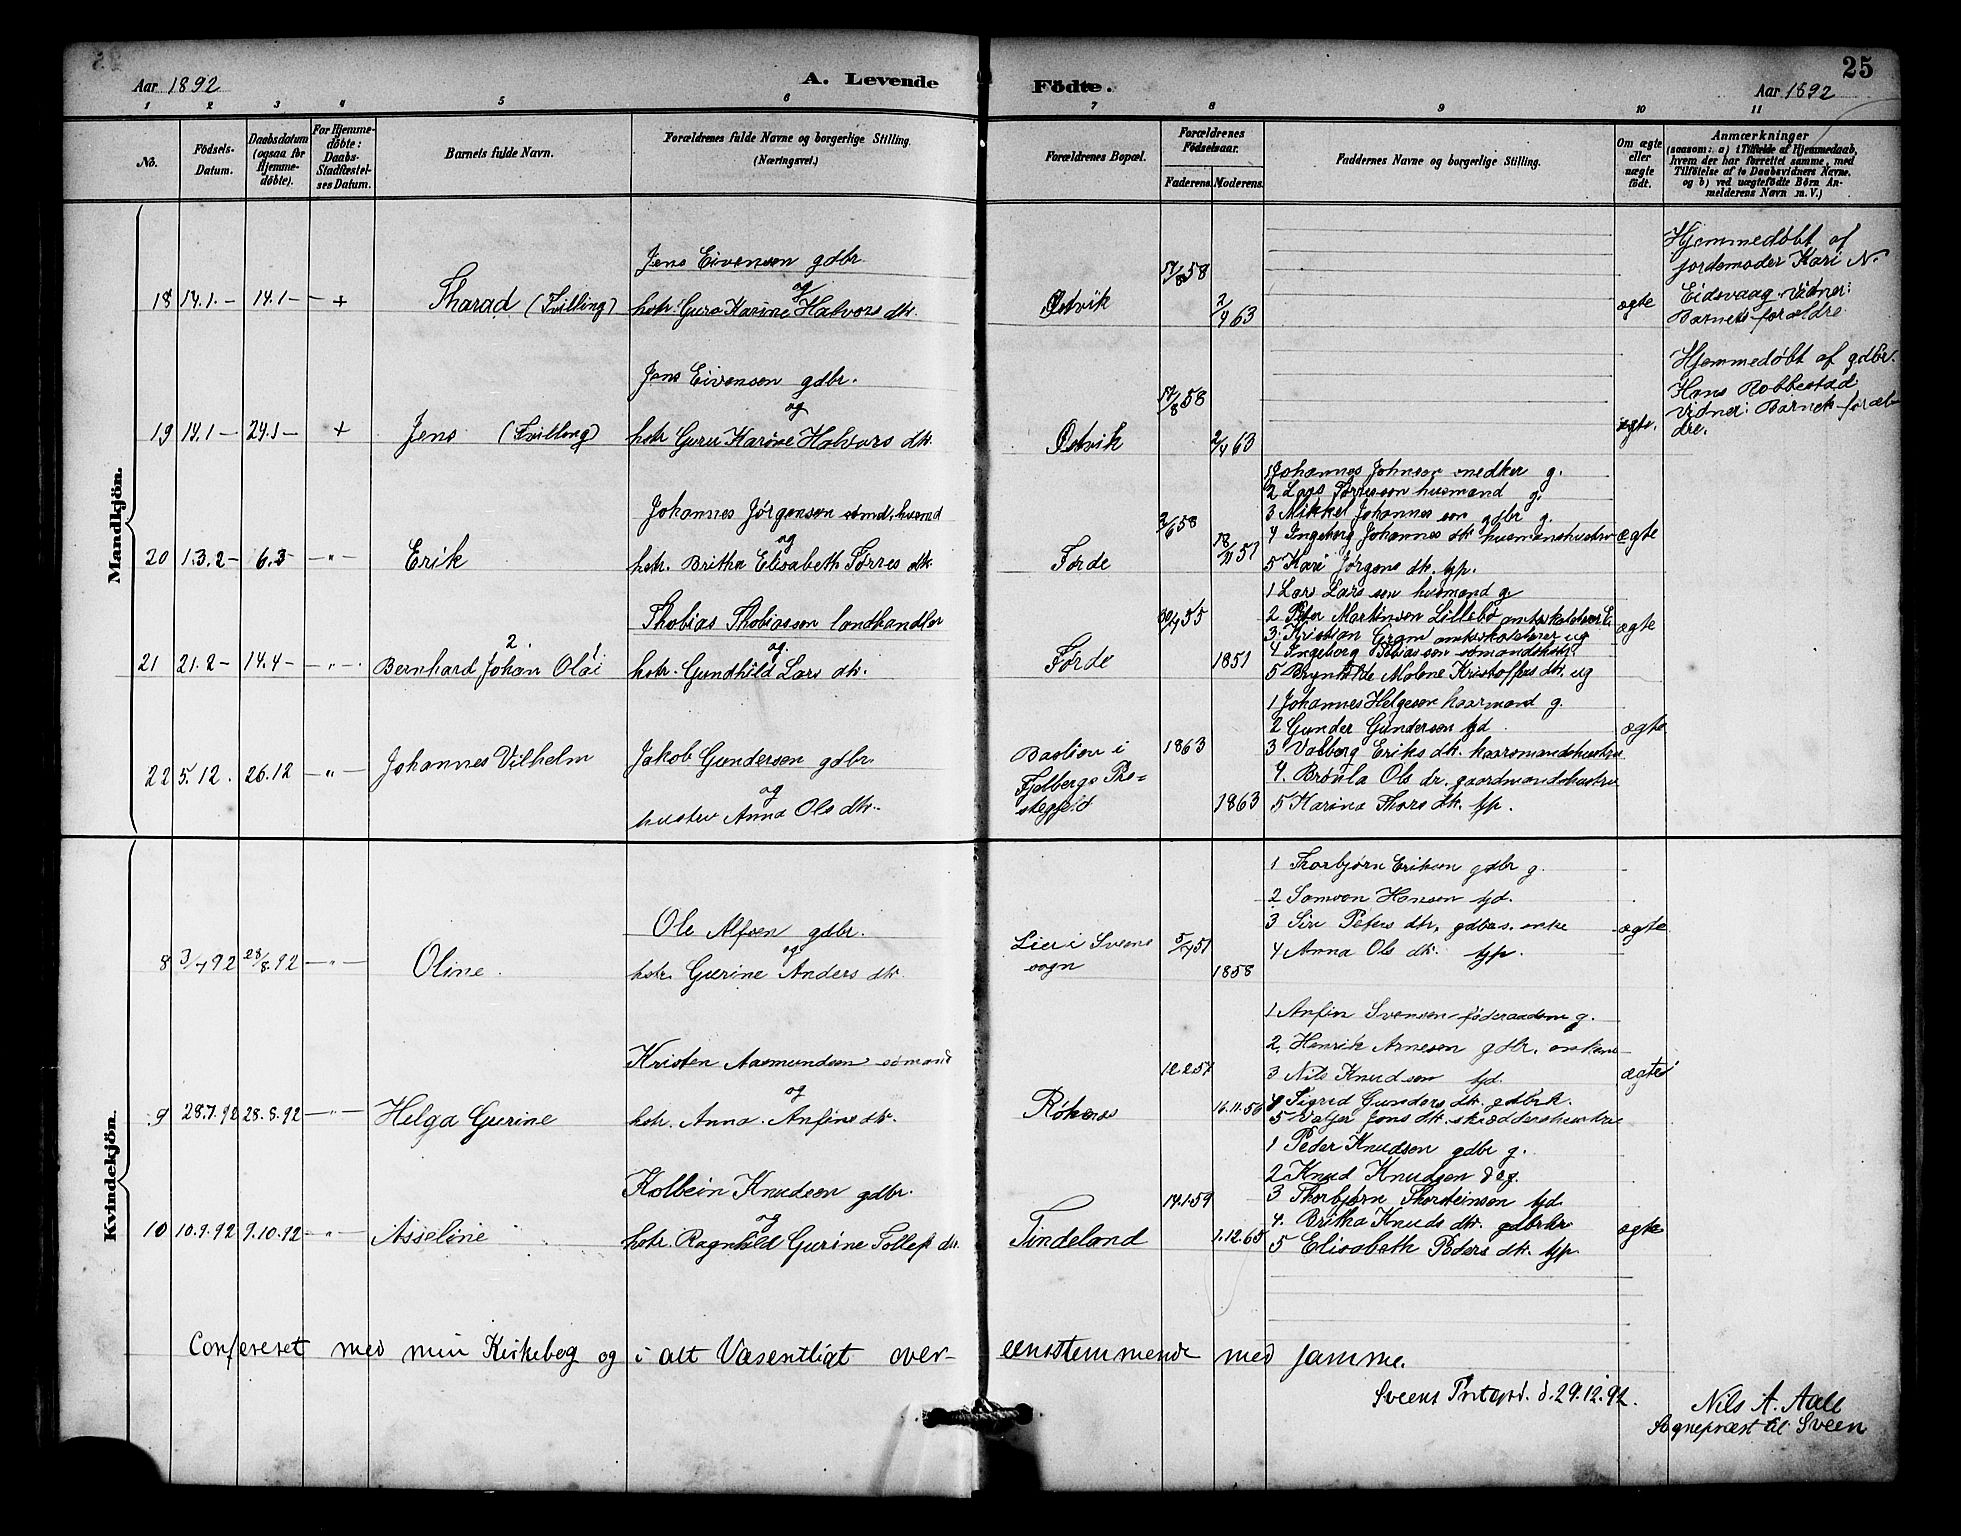 Aar 1892
A. Levende
Födte.
25
Aar 1892
1 2 3 4 5 6 7 8 9 10 11
No.
Födsels-Datum.
Daabsdatum (ogsaa for Hjemme-döbte).
For Hjemme-döbte: Daabs-Stadfæstel-ses Datum.
Barnets fulde Navn.
Forældrenes fulde Navne og borgerlige Stilling. (Næringsvei.)
Forældrenes Bopæl.
Forældrenes Födselsaar.
Faderens. Moderens.
Faddernes Navne og borgerlige Stilling.
Om ægte eller uægte födt.
Anmærkninger
(saasom: a) i Tilfælde af Hjemmedaab,
hvem der har forrettet samme, med
Tilföielse af to Daabsvidners Navne,
og b) ved uægtefödte Börn An-
melderens Navn m. V.)
Mandkjön.
18 14.1.- 14.1- - +
Tharad (Tvilling)
Jens Eivensen gdbr.
og
hstr. Guro Karine Halvors dtr.
Østvik
17/8 58
2/4 63
ægte
Hjemmedøbt af
jordemoder Kari N
Eidsvaag. Vidner:
Barnets forældre
19 14.1- 24.1- +
Jens (Tvilling)
Jens Eivensen gdbr.
og
hstr Guru Karine Halvors dtr.
Østvik
17/8 58
2/4 63
ægte.
Hjemmedøbt af gdbr.
Hans Robbestad
Vidner: Barnets foræl-
dre.
20 13.2- 6.3- -"-
Erik
Johannes Jørgensen sømd, husmd
og
hstr. Britha Elisabeth Tørres dtr.
Førde
2/6 58
18/11 51
1 Johannes Johnson snedker g.
2 Lars Tørresson husmand g.
3 Mikkel Johannesson gdbr g.
4 Ingeborg Johannes dtr husmandshustru
5 Kari Jørgens dtr. tjp.
ægte
21 21.2- 14.4- -"-
2. 1
Bernhard Johan Olai
Thobias Thobiassen landhandler
og
hstr. Gundhild Lars dtr.
Førde
30/4 55
1851
1 Lars Lars son husmand g
2 Peter Martinsen Lillebø
3. Kristian Gram omkskolelærer ug
4 Ingeborg Tobiassen sømandshstr
5 Brynhilde Malene Kristoffers dtr. ug
ægte
22 5.12. 26.12 -"-
Johannes Vilhelm
Jakob Gundersen gdbr.
og
hustru Anna Ols dtr.
Bastion i
Fjelbergs Præ-
stegjeld
1863
1863
1 Johannes Helgesen kaarmand g.
2 Gunder Gundersen tjd.
3 Valborg Eriks dtr. kaarmandshustru
4. Brønla Ols dr. gaardmandshustru
5 Karina Thors dtr. tjp.
ægte
Kvindekjön.
8 3/4 92 28/8.92 -"-
Oline
Ole Alfsen gdbr.
og
hstr. Gurine Anders dtr.
Lier i Sveens
sogn
5/4 51
1858
1 Thorbjørn Eriksen gdbr g.
2 Samson Hansen tjd.
3 Siri Peters dtr. gdbrs. enke
4 Anna Ols dtr. tjp.
ægte
9 28.7.92 28.8.92 -"-
Helga Gurine
Kristen Aasmundsen sømand
og
hstr. Anna Anfins dtr.
Røkenes
12.2.57
16.11.56
1 Anfin Svensen føderaadsm g.
2. Henrik Arnesen gdbr. enkem-
3 Nils Knudsen tjd.
4 Sigrid Gunders dtr. gdbrk.
5 Valjer Jons dtr. skræddershustru
ægte
10 10.9.92 9.10.92 -"-
Asseline
Kolbein Knudsen gdbr.
og
hstr. Ragnhild Gurine Tollefs dtr.
Tindeland
14.1.59
1.12.65
1 Peder Knudsen gdbr g.
2 Knud Knudsen do g.
3 Thorbjørn Thorsteinsen tjd.
4. Britha Knuds dtr. gdbrhr
5 Elisabeth Peders dtr. tjp.
ægte
Confereret med min Kirkebog og i alt Væsentligt over-
eensstemmende med samme.
Sveens Prstgrd. d. 29.12.92.
Nils A. Aall
Sognepræst til Sveen